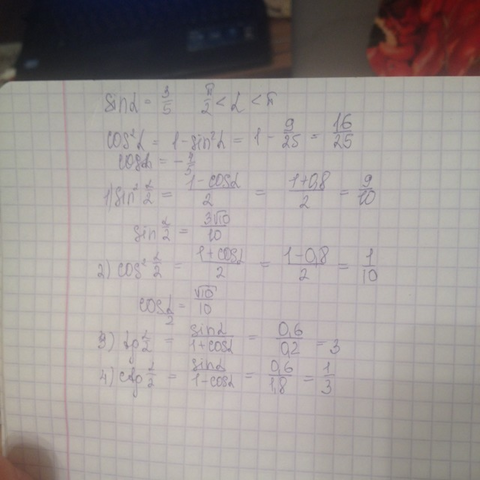 sinα = 3/5   π/2 < α < π
cos²α = 1 - sin²α = 1 - 9/25 = 16/25
cosα = -4/5
1) sin² α/2 = (1 - cosα)/2 = (1+0,8)/2 = 9/10
sin α/2 = 3√10/10
2) cos² α/2 = (1+cosα)/2 = (1-0,8)/2 = 1/10
cos α/2 = √10/10
3) tg α/2 = sinα/(1+cosα) = 0,6/0,2 = 3
4) ctg α/2 = sinα/(1-cosα) = 0,6/1,8 = 1/3